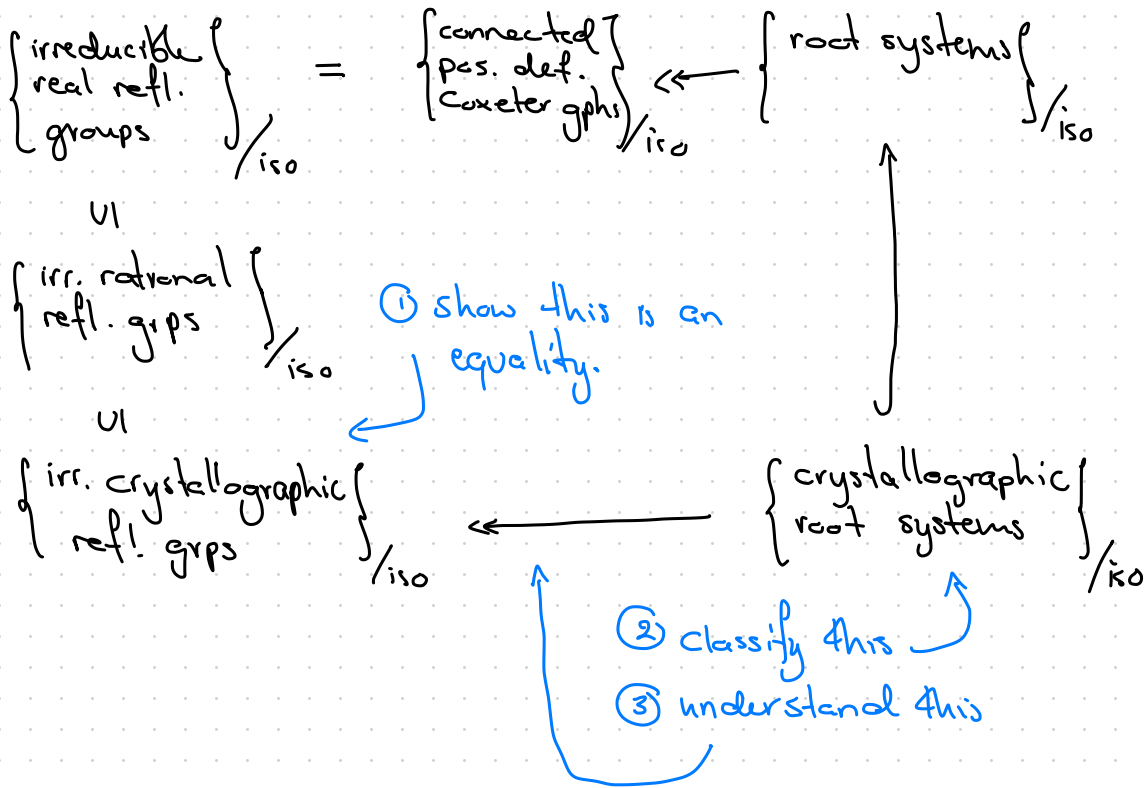 { irreducible
real refl.
groups } /iso
=
{ connected
pos. def.
Coxeter gphs } /iso
↞
{ root systems } /iso
UI
{ irr. rational
refl. grps } /iso
① show this is an
equality.
UI
{ irr. crystallographic
refl. grps } /iso
↞
{ crystallographic
root systems } /iso
② classify this
③ understand this